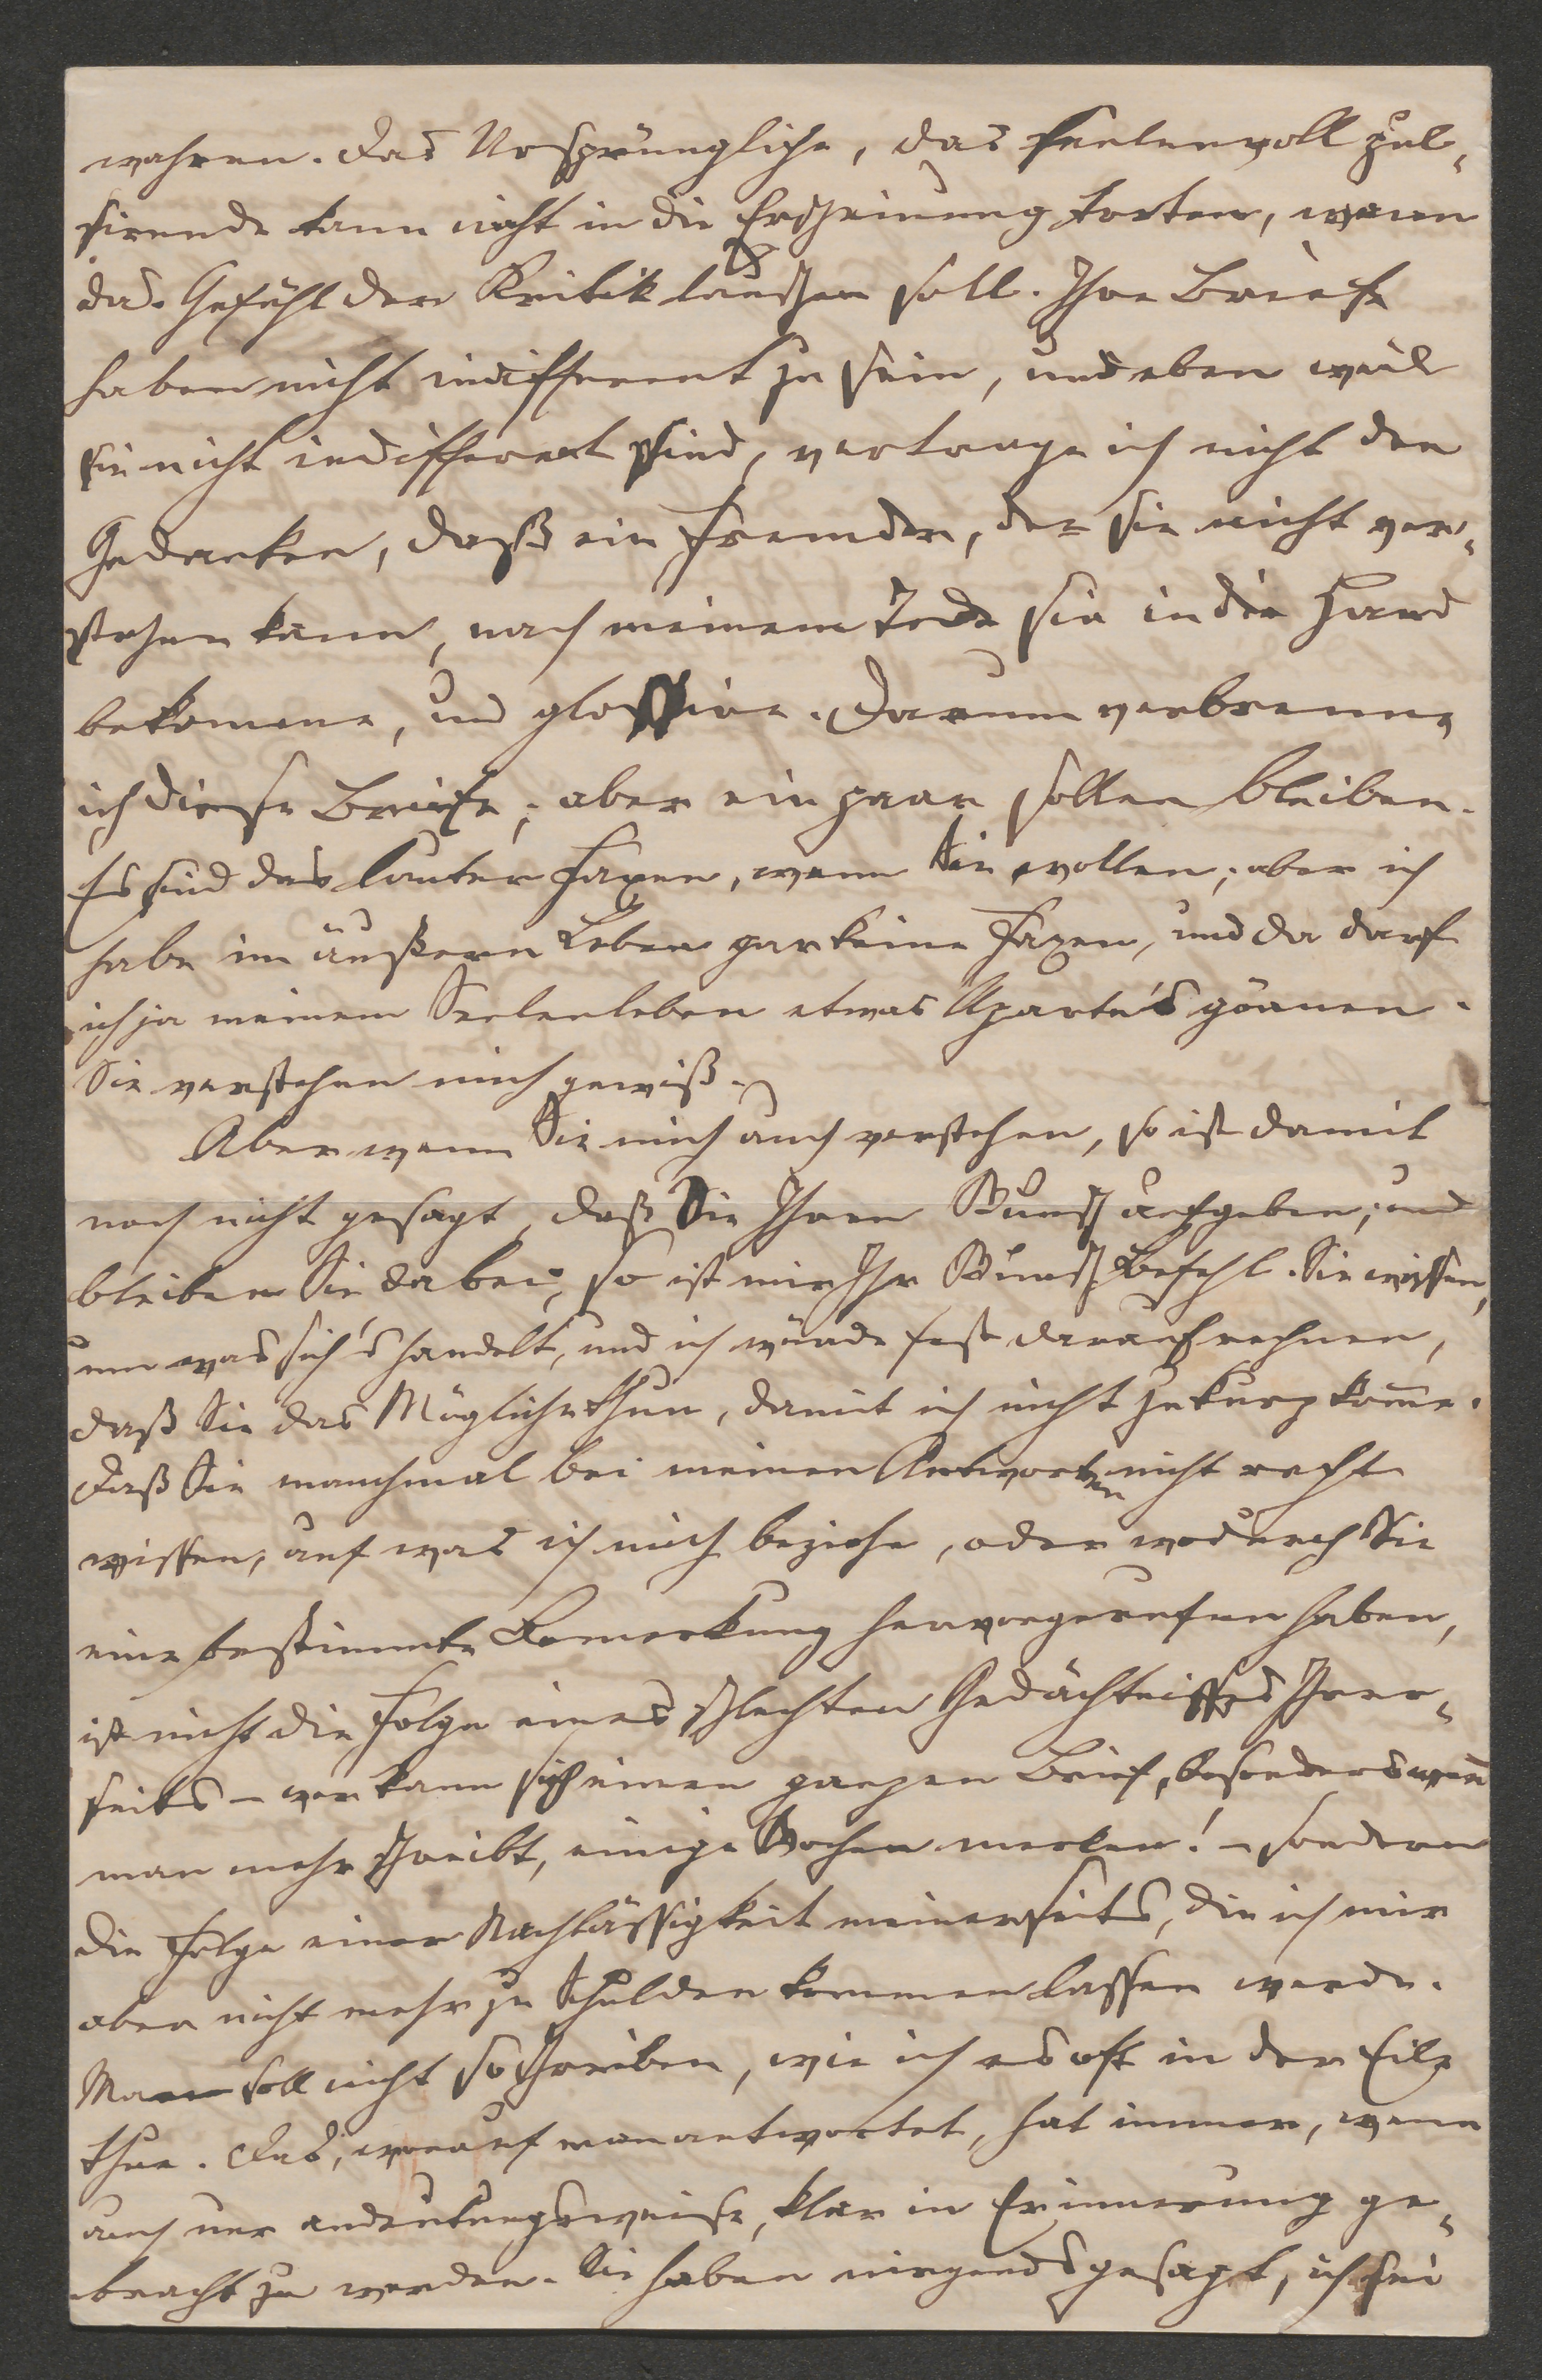 wahren. Das Ursprüngliche, das seelenvoll pul-
sirende kann nicht in die Erscheinung treten, wenn
das Gefühl der Kritik lauschen soll. Ihre Briefe
haben nicht indifferent zu sein, und eben weil
sie nicht indifferent sind, vertrage ich nicht den
Gedanken, daß ein Fremder, der sie nicht ver-
stehen kann, nach meinem Tode sie in die Hand
bekomme, und glossire. Darum verbrenne
ich diese Briefe; aber ein paar sollen bleiben.
Es sind das lauter Faxen, wenn Sie wollen; aber ich
habe im äußern Leben gar keine Faxen, und da darf
ich ja meinem Seelenleben etwas Aparte's gönnen.
Sie verstehen mich gewiß.
Aber wenn Sie mich auch verstehen, so ist damit
noch nicht gesagt, daß Sie Ihren Wunsch aufgeben; und
bleiben Sie dabei, so ist mir Ihr Wunsch Befehl. Sie wissen,
um was sich's handelt, und ich würde fest darauf rechnen,
daß Sie das Mögliche thun, damit ich nicht zu kurz kom̄e.
Daß Sie manchmal bei meinen Antworten nicht recht
wissen, auf was ich mich beziehe, oder wodurch Sie
eine bestimmte Bemerkung hervorgerufen haben,
ist nicht die Folge eines schlechten Gedächtnisses Ihrer-
seits – wer kann sich einen ganzen Brief, besonders wen̄
man mehr schreibt, einige Wochen merken! – sondern
die Folge einer Nachlässigkeit meinerseits, die ich mir
aber nicht mehr zu Schulden kommen lassen werde.
Man soll nicht so schreiben, wie ich es oft in der Eile
thue. Das, worauf man antwortet, hat immer, wenn
auch nur andeutungsweise, klar in Erinnerung ge-
bracht zu werden. Sie haben nirgends gesagt, ich sei